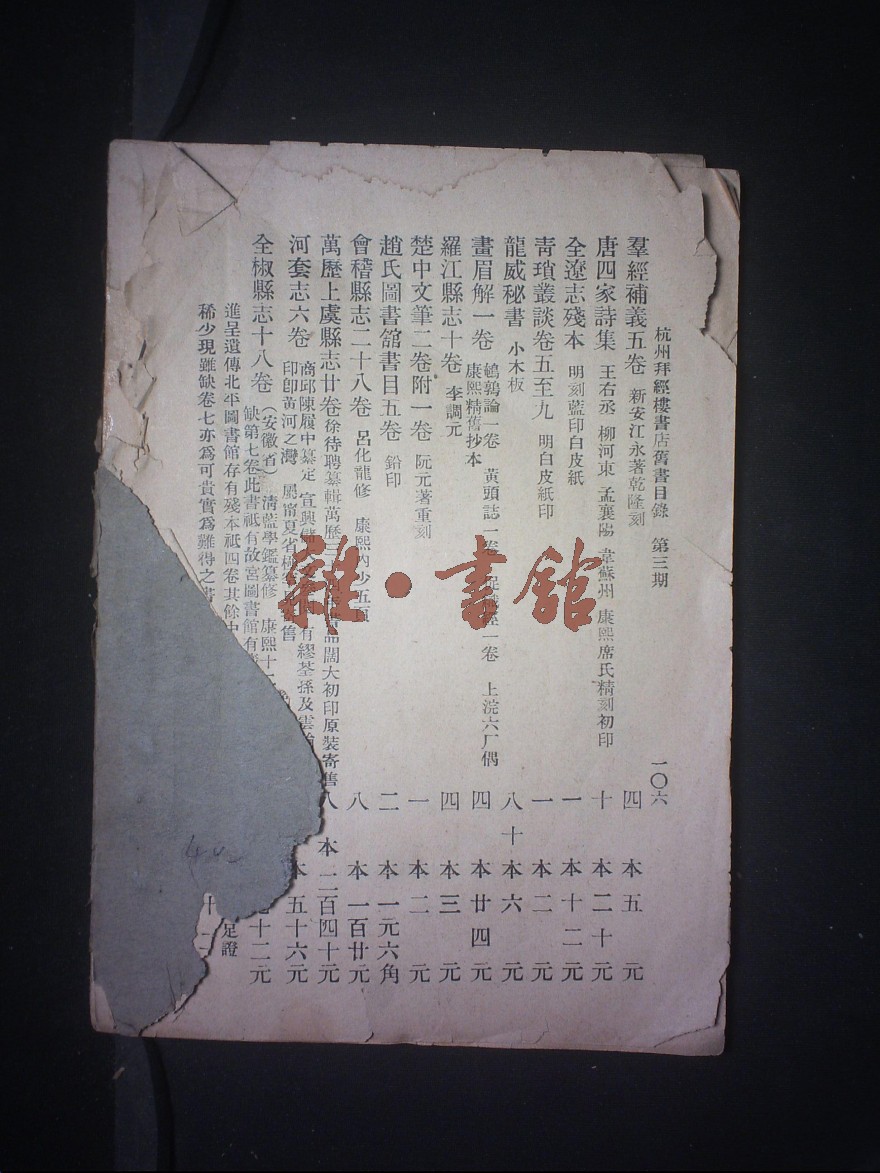 杭州拜經樓書店舊書目錄 第三期 一〇六
羣經補義五卷 新安江永著乾隆刻 四本五元
唐四家詩集 王右丞 柳河東 孟襄陽 韋蘇州 康熙席氏精刻初印 十本二十元
全遼志殘本 明刻藍印白皮紙 一本十二元
靑瑣叢談卷五至九 明白皮紙印 一本二元
龍威秘書 小木板 八十本六元
畫眉解一卷 鵪鶉論一卷 黃頭誌一卷 一卷 上浣六厂偶
康熙精舊抄本 四本廿四元
羅江縣志十卷 李調元 四本三元
楚中文筆二卷附一卷 阮元著重刻 一本二元
趙氏圖書舘書目五卷 鉛印 二本一元六角
會稽縣志二十八卷 呂化龍修 康熙內少五頁 八本一百廿元
萬歷上虞縣志廿卷 徐待聘纂輯萬歷三 闊大初印原裝寄售 八本二百四十元
河套志六卷 商邱陳履中纂定 宜興儲 有繆荃孫及雲
印卽黃河之灣 屬甯夏省 售 本五十六元
全椒縣志十八卷 (安徽省) 淸藍學鑑纂修 康熙十
缺第七卷此書祇有故宮圖書館有 十二元
進呈遺傳北平圖書館存有殘本祇四卷其餘 足證
稀少現雖缺卷七亦爲可貴實爲難得之書
雜·書舘